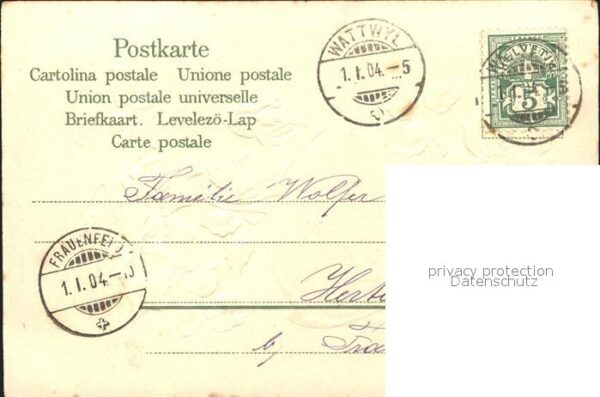 Postkarte
Cartolina postale Unione postale
Union postale universelle
Briefkaart. Levelezö-Lap
Carte postale
WATTWYL
1. I. 04. — 5
HELVETIA
5
Familie Wolfer
FRAUENFELD
1. I. 04. —
privacy protection
Datenschutz
b/